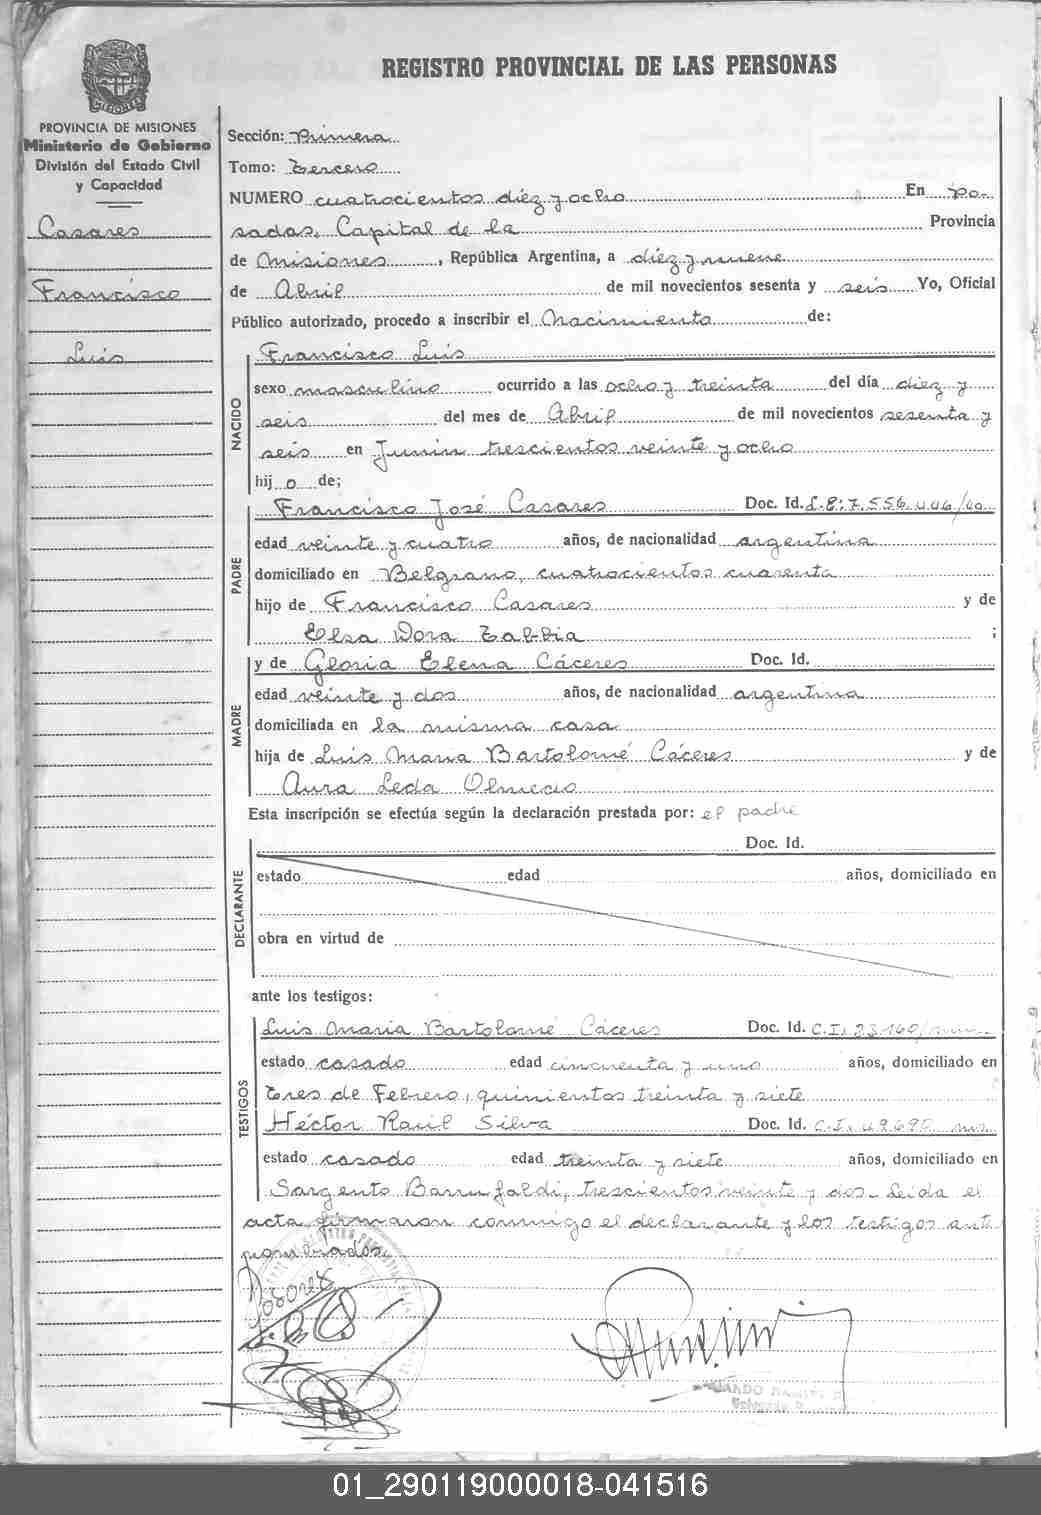 REGISTRO PROVINCIAL DE LAS PERSONAS
MISIONES
PROVINCIA DE MISIONES
Ministerio de Gobierno
División del Estado Civil
y Capacidad
Casares
Francisco
Luis
Sección: Primera
Tomo: Tercero
NUMERO cuatrocientos diez y ocho En Po-
sadas, Capital de la Provincia
de Misiones, República Argentina, a diez y nueve
de Abril de mil novecientos sesenta y seis Yo, Oficial
Público autorizado, procedo a inscribir el Nacimiento de:
NACIDO
Francisco Luis
sexo masculino ocurrido a las ocho y treinta del día diez y
seis del mes de Abril de mil novecientos sesenta y
seis en Junin trescientos veinte y ocho
hijo de;
PADRE
Francisco José Casares Doc. Id. L.E: 7.556.
edad veinte y cuatro años, de nacionalidad argentina
domiciliado en Belgrano, cuatrocientos cuarenta
hijo de Francisco Casares y de
Elsa Dora Tabbia ;
MADRE
y de Gloria Elena Cáceres Doc. Id.
edad veinte y dos años, de nacionalidad argentina
domiciliada en la misma casa
hija de Luis Maria Bartolomé Cáceres y de
Aura Leda Olmedo
Esta inscripción se efectúa según la declaración prestada por: el padre
DECLARANTE
Doc. Id.
estado edad años, domiciliado en
obra en virtud de
ante los testigos:
TESTIGOS
Luis Maria Bartolomé Cáceres Doc. Id. C.I. 23.160/
estado casado edad cincuenta y uno años, domiciliado en
Tres de Febrero, quinientos treinta y siete
Héctor Raúl Silva Doc. Id. C.I.
estado casado edad treinta y siete años, domiciliado en
Sargento Barrufaldi, trescientos veinte y dos. Leida el
acta, firmaron conmigo el declarante y los testigos ante
nombrados.
01_290119000018-041516